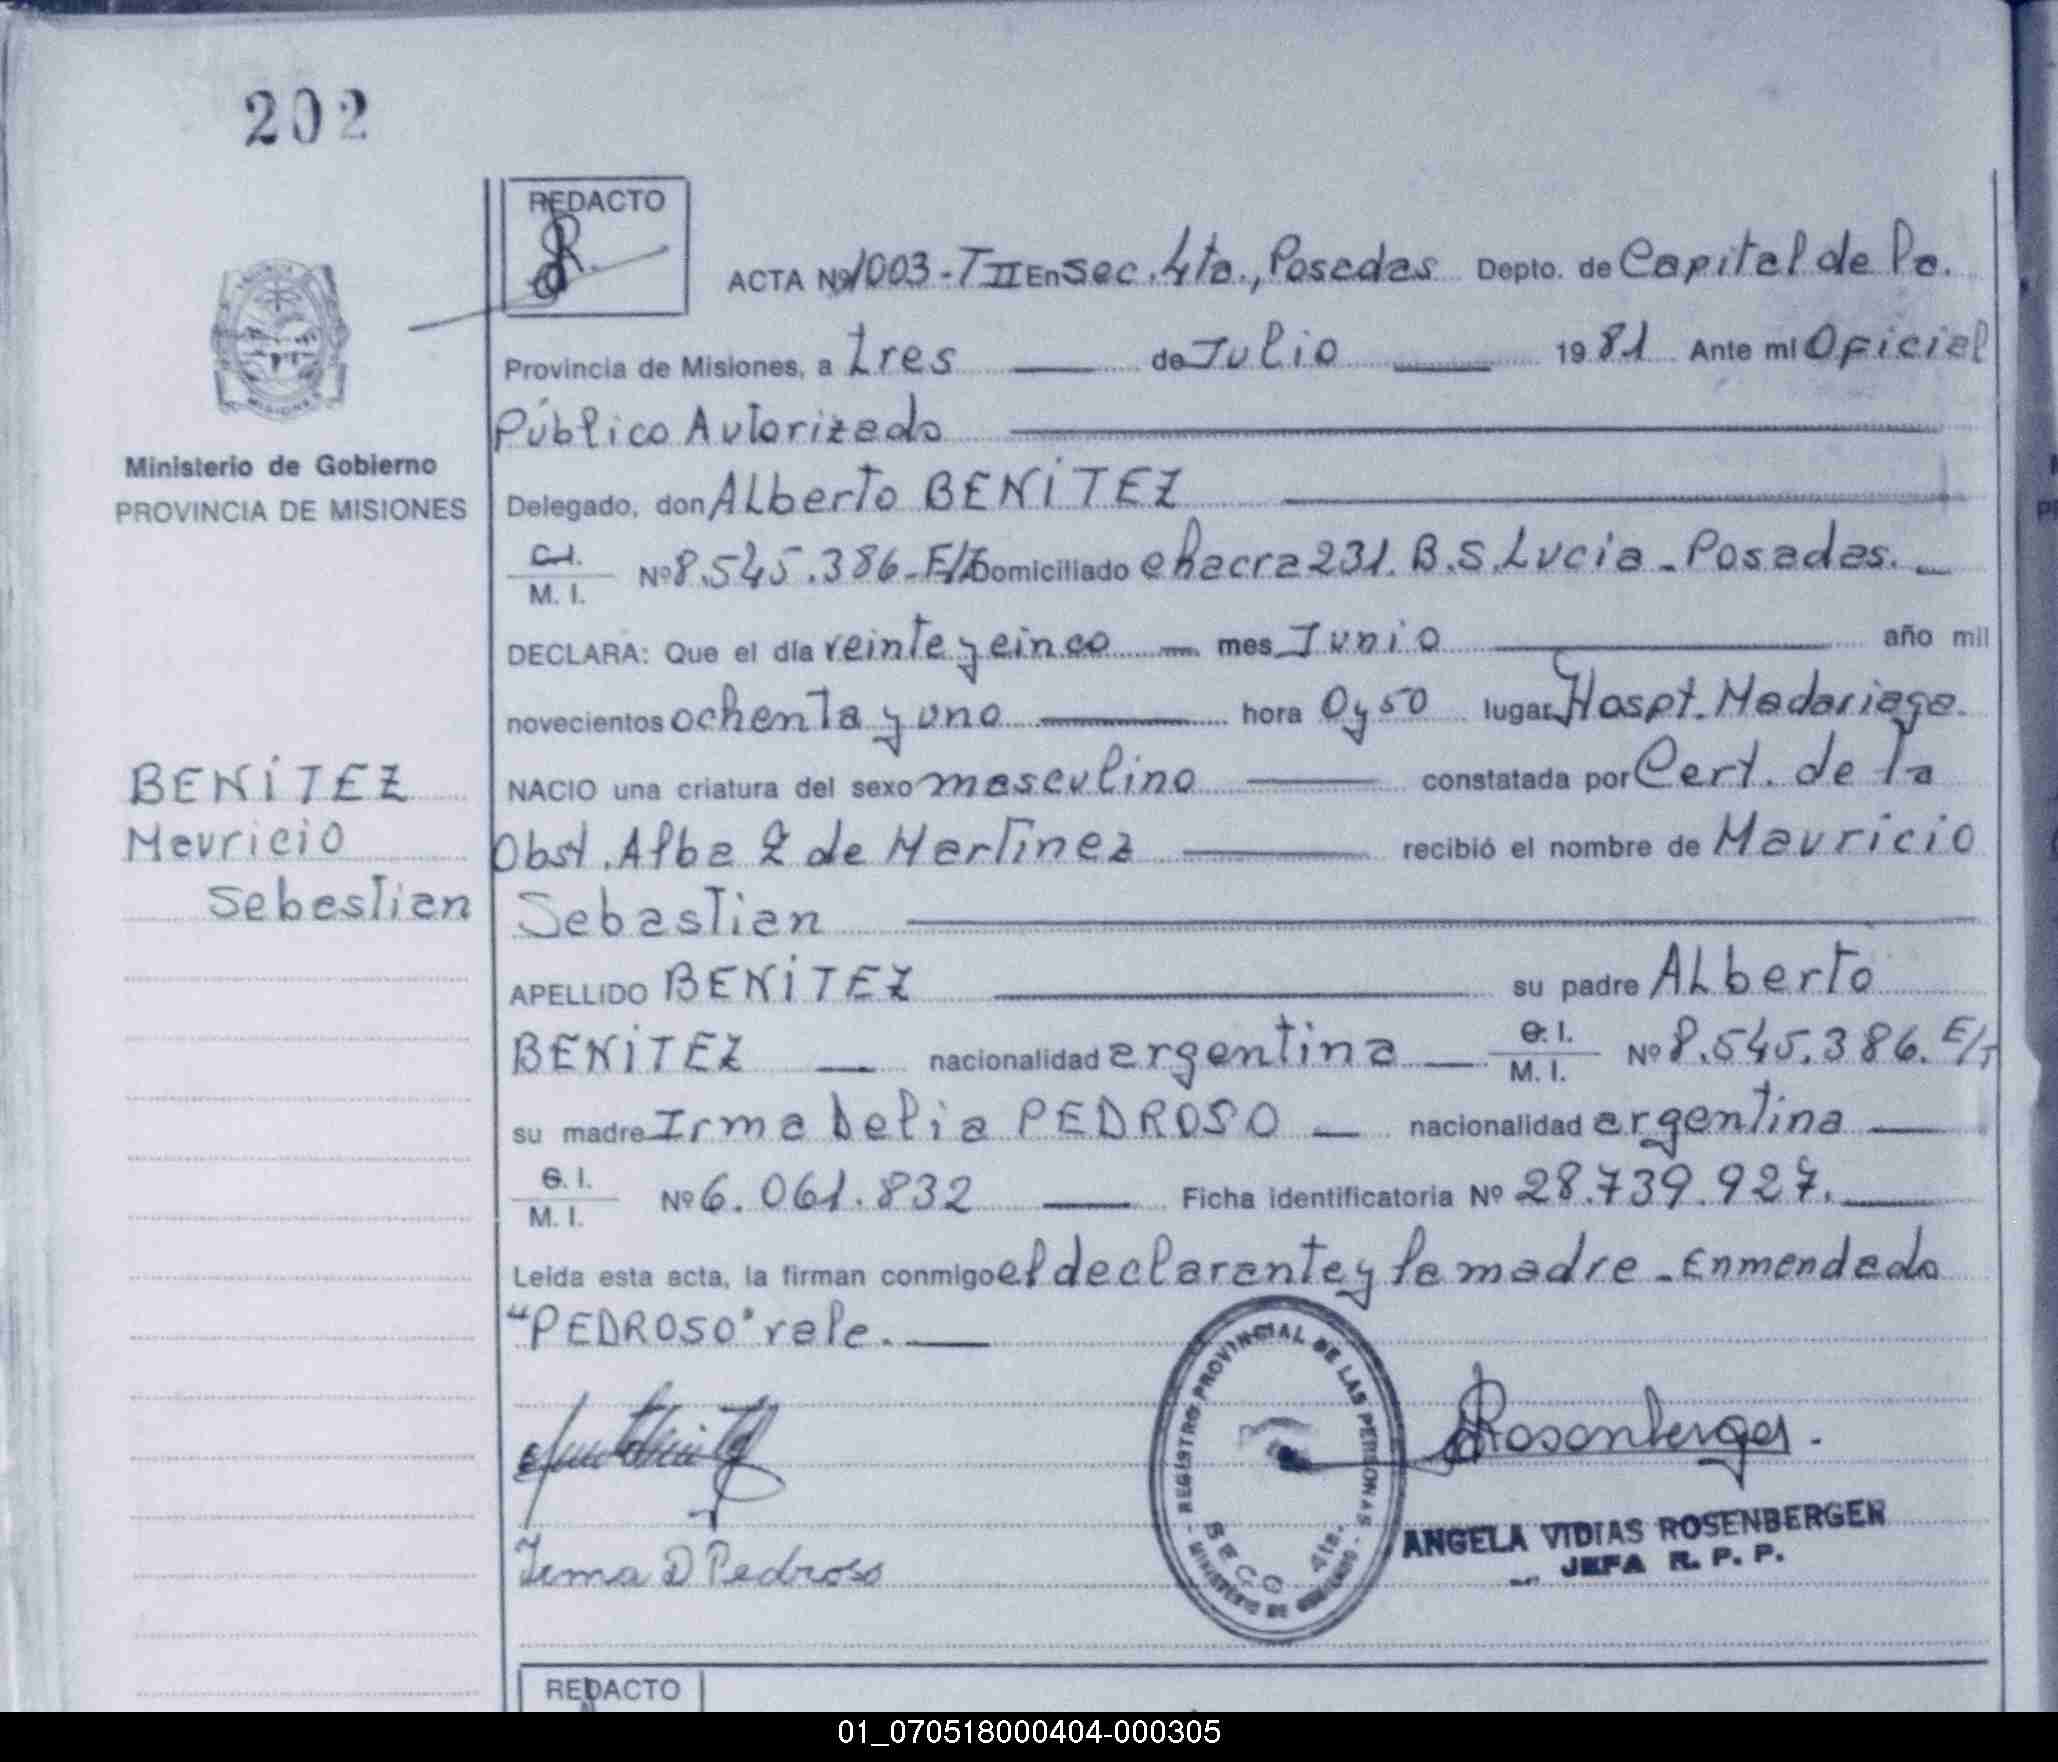 202
REDACTO
ACTA Nº 1003-T II En Sec. 4ta., Posadas Depto. de Capital de la
Provincia de Misiones, a tres de Julio 1981 Ante mi Oficial
Público Autorizado
Ministerio de Gobierno
PROVINCIA DE MISIONES
Delegado, don Alberto BENÍTEZ
C.I.
M. I. Nº 8.545.386-E/T Domiciliado chacra 231. B.S. Lucia - Posadas.
DECLARA: Que el día veinte y cinco mes Junio año mil
novecientos ochenta y uno hora 0 y 50 lugar Hospt. Madariaga.
NACIO una criatura del sexo masculino constatada por Cert. de la
Obst. Alba Z de Martínez recibió el nombre de Mauricio
Sebastian
BENÍTEZ
Mauricio
Sebastian
APELLIDO BENÍTEZ su padre Alberto
BENÍTEZ nacionalidad argentina C.I. M. I. Nº 8.545.386. E/T
su madre Irma Delia PEDROSO nacionalidad argentina
C.I.
M. I. Nº 6.061.832 Ficha identificatoria Nº 28.739.927.
Leida esta acta, la firman conmigo el declarante y la madre - Enmendado
"PEDROSO" vale.
Irma D Pedroso
REGISTRO PROVINCIAL DE LAS PERSONAS
SECC 4ta.
MINISTERIO DE GOBIERNO
Rosenberger.
ANGELA VIDIAS ROSENBERGER
JEFA R. P. P.
REDACTO
01_070518000404-000305